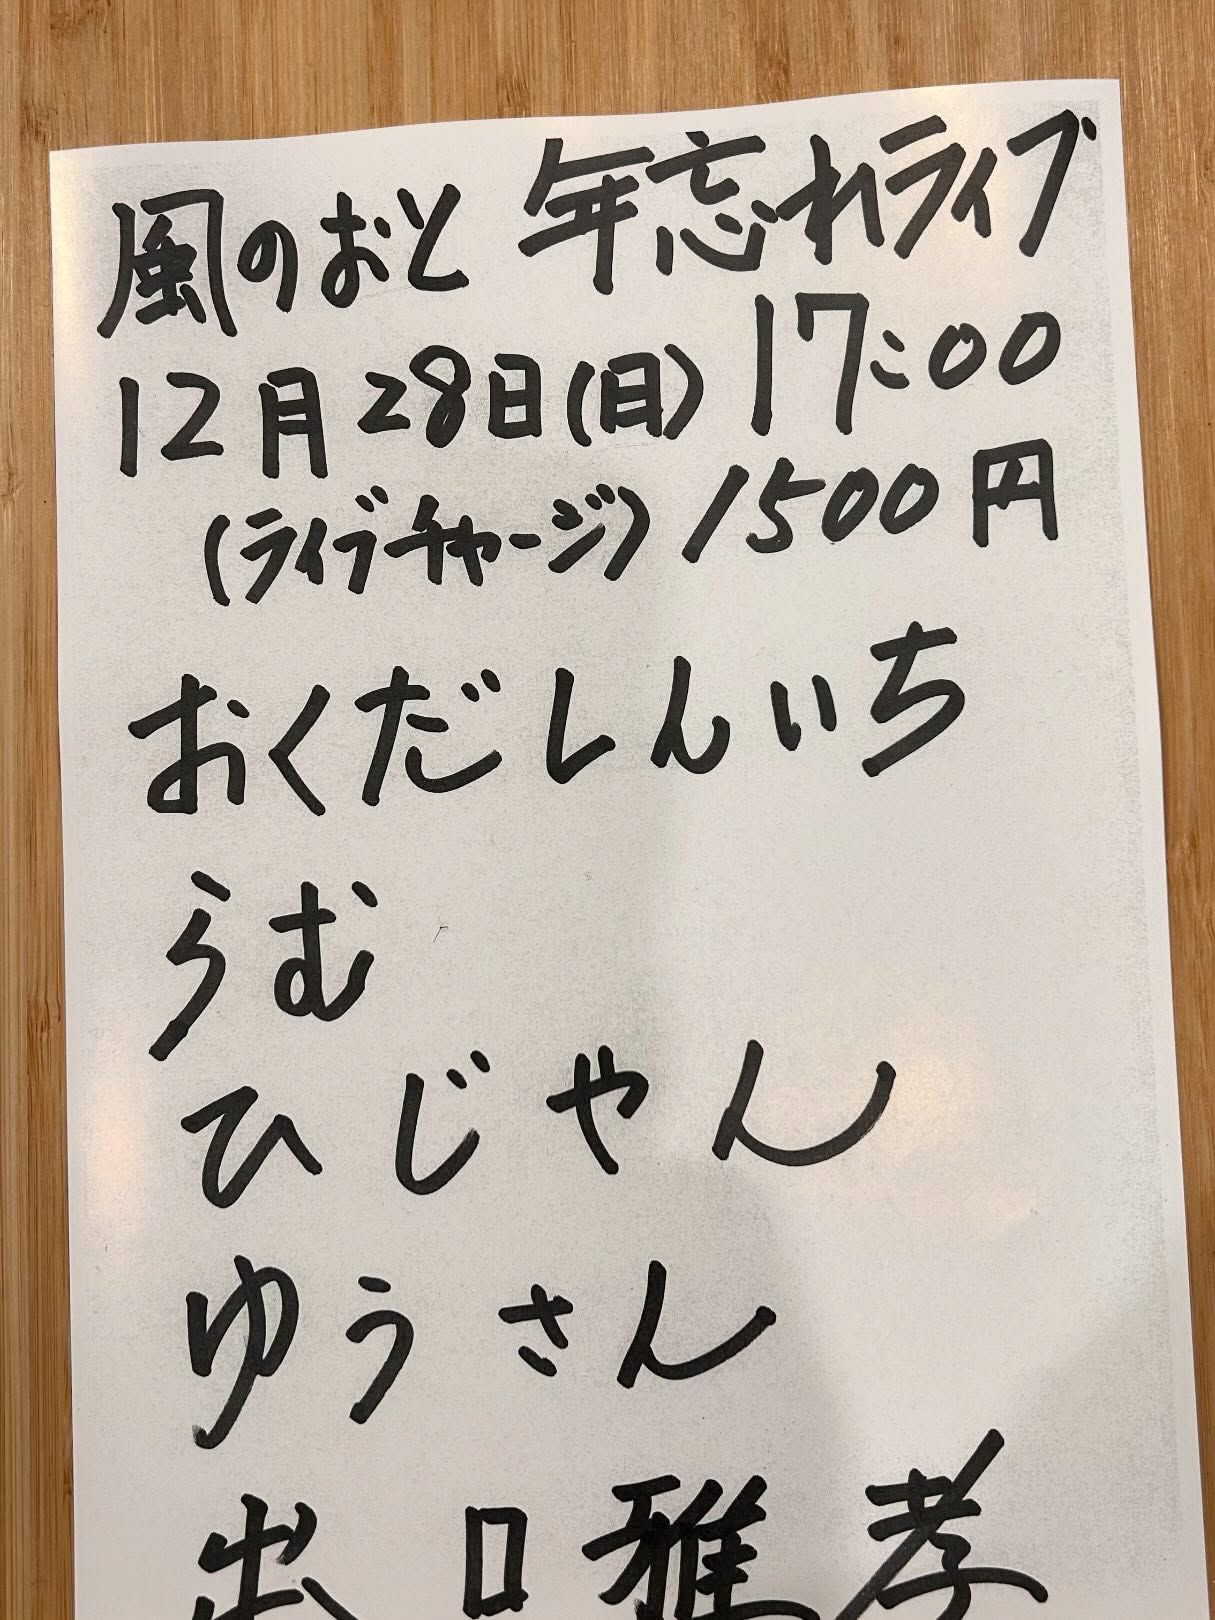 風のおと 年忘れライブ
12月28日(日) 17:00
(ライブチャージ) 1500円
おくだしんいち
らむ
ひじゃん
ゆうさん
出口雅孝